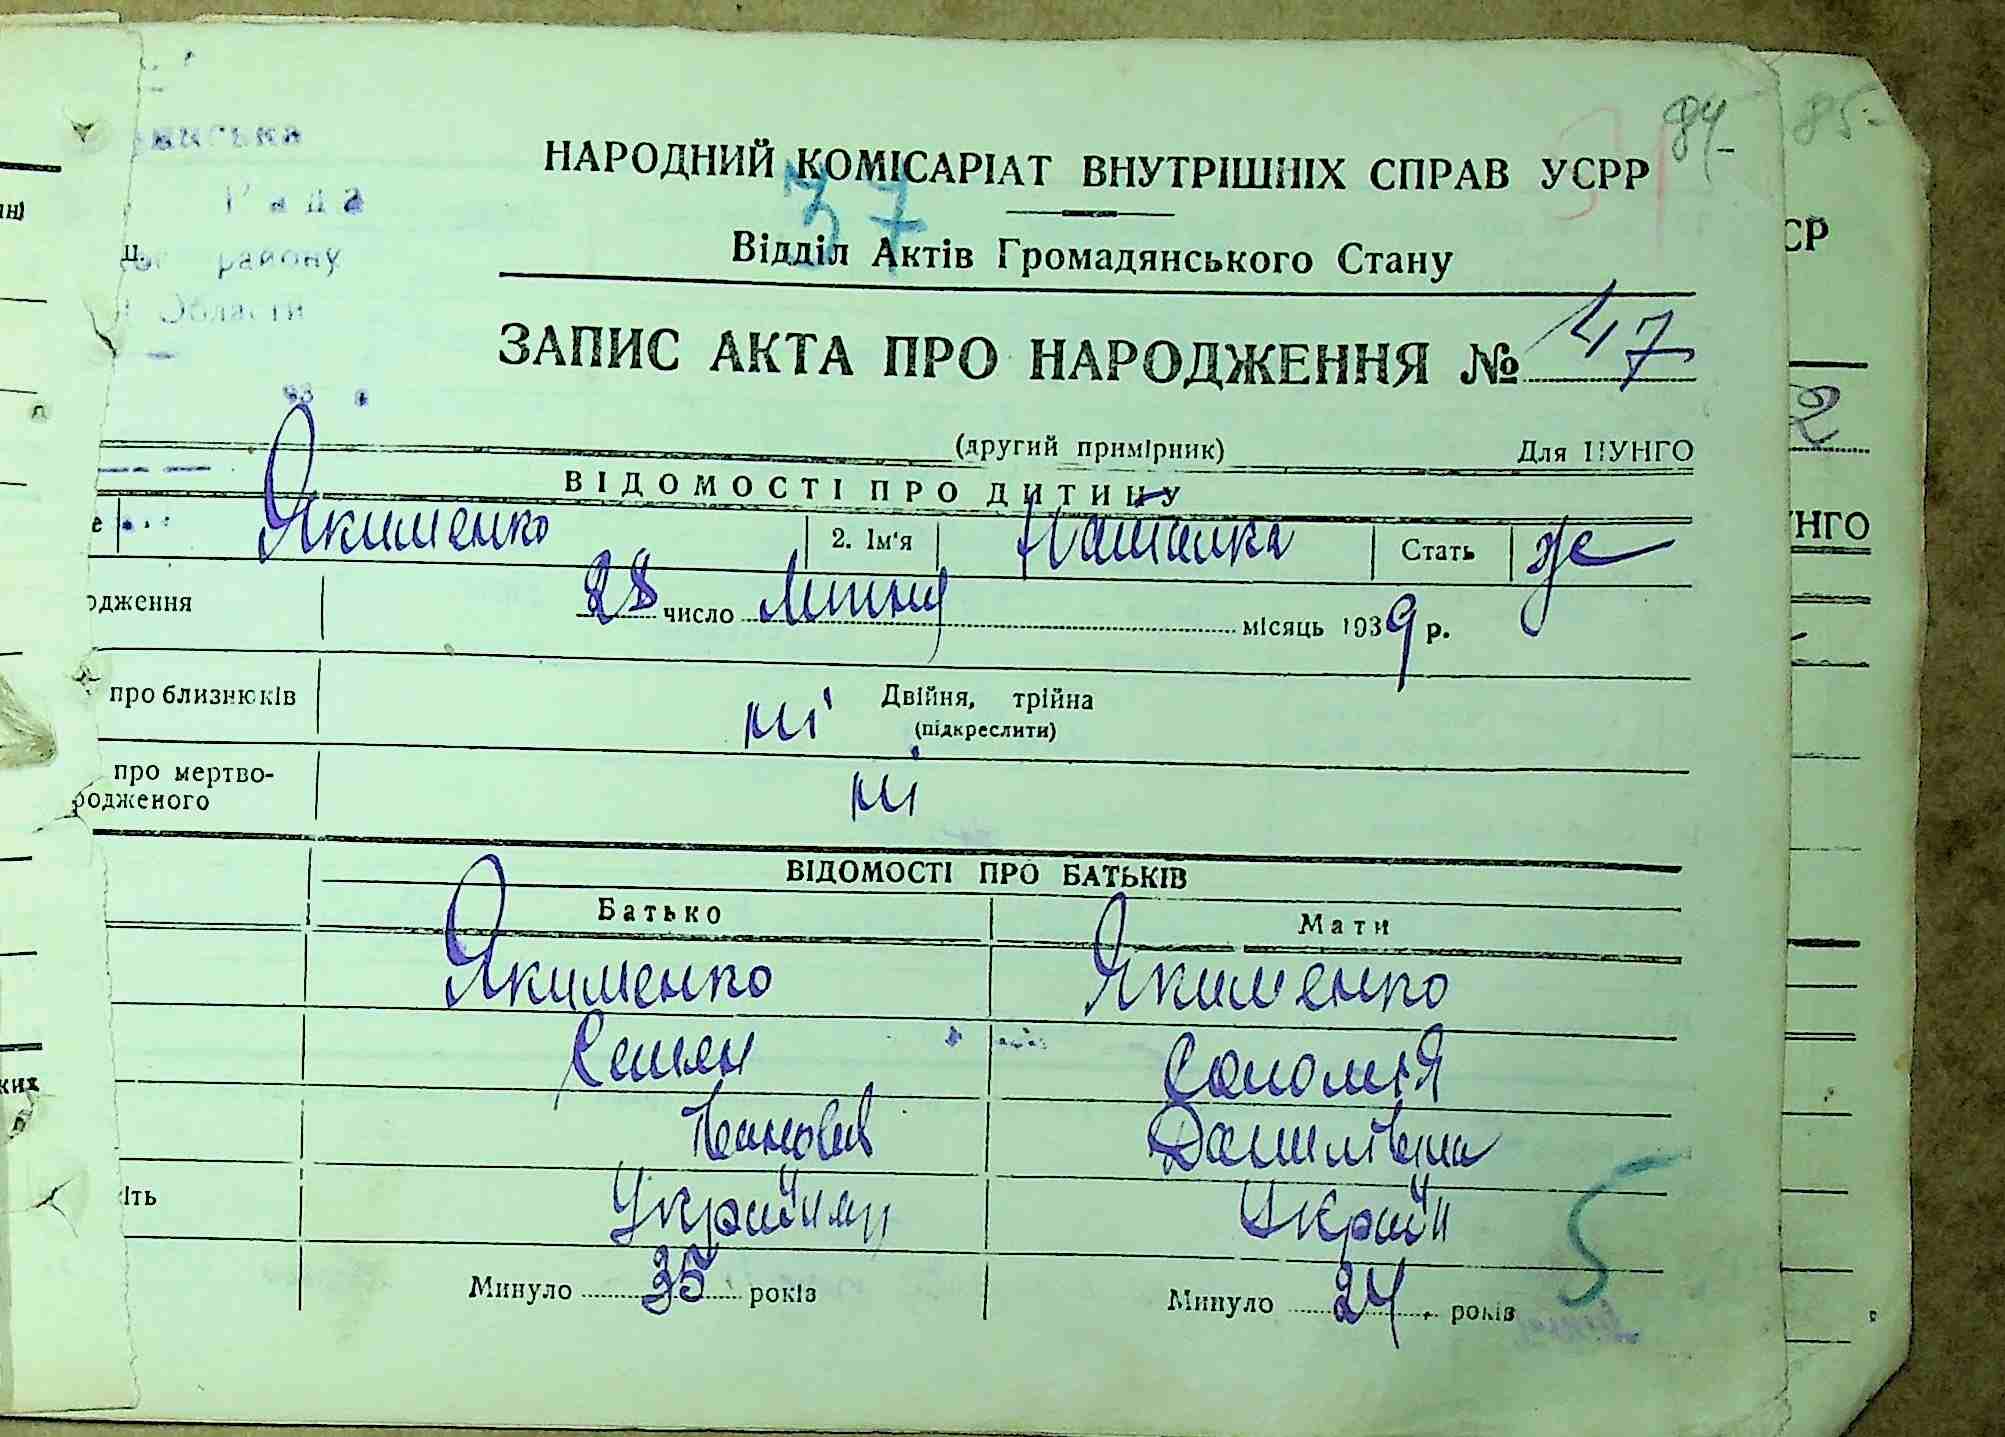 84-
85-
НАРОДНИЙ КОМІСАРІАТ ВНУТРІШНІХ СПРАВ УСРР
37
Відділ Актів Громадянського Стану
району
Області
ЗАПИС АКТА ПРО НАРОДЖЕННЯ № 47
(другий примірник) Для ЦУНГО
ВІДОМОСТІ ПРО ДИТИНУ
Якименко 2. Ім'я Наталка Стать ж
одження 28 число Липня місяць 1939 р.
про близнюків ні Двійня, трійна
(підкреслити)
про мертво-
родженого ні
ВІДОМОСТІ ПРО БАТЬКІВ
Батько Мати
Якименко Якименко
Семен Соломія
Іванович Данилівна
ість Україн
Минуло 35 років Минуло 24 років
5
СР
2
УНГО
ких